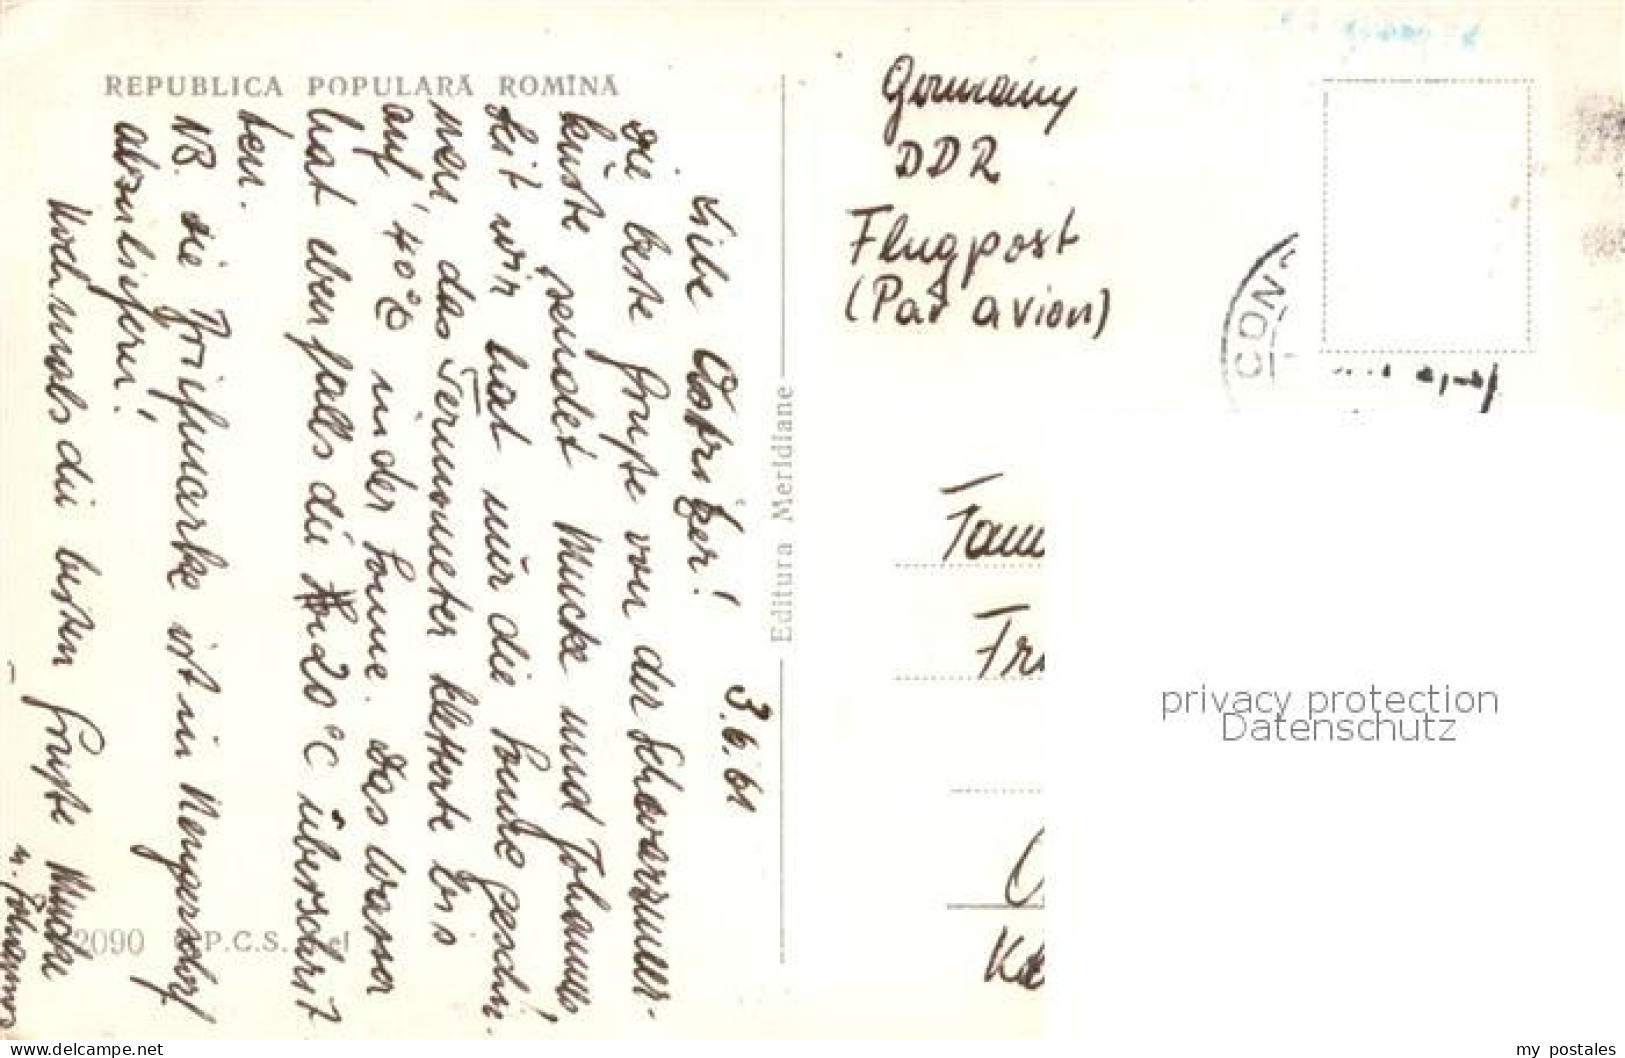 REPUBLICA POPULARĂ ROMÎNĂ
3.6.61
Liebe Ostritzer!
Die beste Grüße von der Schwarzmeer-
küste sendet Mucke und Johannes!
Seit wir hat nur die Sonne geschie-
nen, das Termometer kletterte bis
auf 40°C in der Sonne. Das Wasser
hat ebenfalls die 20°C überschrit
ten.
NB. die Briefmarke ist in Neugersdorf
abzuliefern!
Nochmals die besten Grüße Mucke
u. Johannes
2090 P.C.S.
Editura Meridiane
Germany
DDR
Flugpost
(Par avion)
CON
Fam
Fr
Ke
privacy protection
Datenschutz
delcampe.net
my_postales